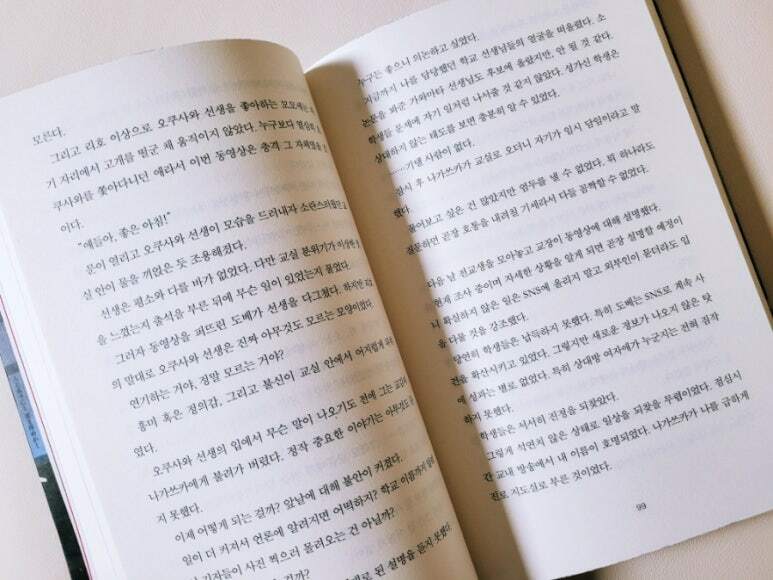 모른다.
그리고 리호 이상으로 오쿠사와 선생을 좋아하는
기 자리에서 고개를 떨군 채 움직이지 않았다. 누구보다 열심히
쿠사와를 쫓아다니던 애라서 이번 동영상은 충격 그 자체였을
이다.
"얘들아, 좋은 아침!"
문이 열리고 오쿠사와 선생이 모습을 드러내자 소란스러웠던 교
실 안이 물을 끼얹은 듯 조용해졌다.
선생은 평소와 다를 바가 없었다. 다만 교실 분위기가 이상한 것
을 느꼈는지 출석을 부른 뒤에 무슨 일이 있었는지 물었다.
그러자 동영상을 퍼뜨린 도베가 선생을 다그쳤다. 하지만
의 말대로 오쿠사와 선생은 진짜 아무것도 모르는 모양이었다.
연기하는 거야, 정말 모르는 거야?
흥미 혹은 정의감, 그리고 불신이 교실 안에서 어지럽게
였다.
오쿠사와 선생의 입에서 무슨 말이 나오기도 전에 그는
나가쓰카에게 불려가 버렸다. 정작 중요한 이야기는 아무것도
지 못했다.
이제 어떻게 되는 걸까? 앞날에 대해 불안이 커졌다.
일이 더 커져서 언론에 알려지면 어떡하지? 학교 이름까지
기자들이 사진 찍으러 몰려오는 건 아닐까?
걸까?
된 설명을 듣지 못했다.
누구든 좋으니 의논하고 싶었다.
지금까지 나를 담당했던 학교 선생님들의 얼굴을 떠올렸다. 소
논문을 봐준 가와마타 선생님도 후보에 올랐지만, 안 될 것 같다.
학생들 문제에 자기 일처럼 나서줄 것 같지 않았다. 성가신 학생은
상대하지 않는 태도를 보면 충분히 알 수 있었다.
……기댈 사람이 없다.
잠시 후 나가쓰카가 교실로 오더니 자기가 임시 담임이라고 말
했다.
물어보고 싶은 건 많았지만 엄두를 낼 수 없었다. 뭐 하나라도
질문하면 곧장 호통을 내려칠 기세라서 다들 꼼짝할 수 없었다.
다음 날 전교생을 모아놓고 교장이 동영상에 대해 설명했다.
현재 조사 중이며 자세한 상황을 알게 되면 곧장 설명할 예정이
니 확실하지 않은 일은 SNS에 올리지 말고 외부인이 묻더라도 입
을 다물 것을 강조했다.
당연히 학생들은 납득하지 못했다. 특히 도베는 SNS로 계속 사
건을 확산시키고 있었다. 그렇지만 새로운 정보가 나오지 않은 탓
에 성과는 별로 없었다. 특히 상대방 여자애가 누군지는 전혀 짐작
하지 못했다.
학생들은 서서히 진정을 되찾았다.
그렇게 석연치 않은 상태로 일상을 되찾을 무렵이었다. 점심시
간 교내 방송에서 내 이름이 호명되었다. 나가쓰카가 나를 급하게
진로 지도실로 부른 것이었다.
99